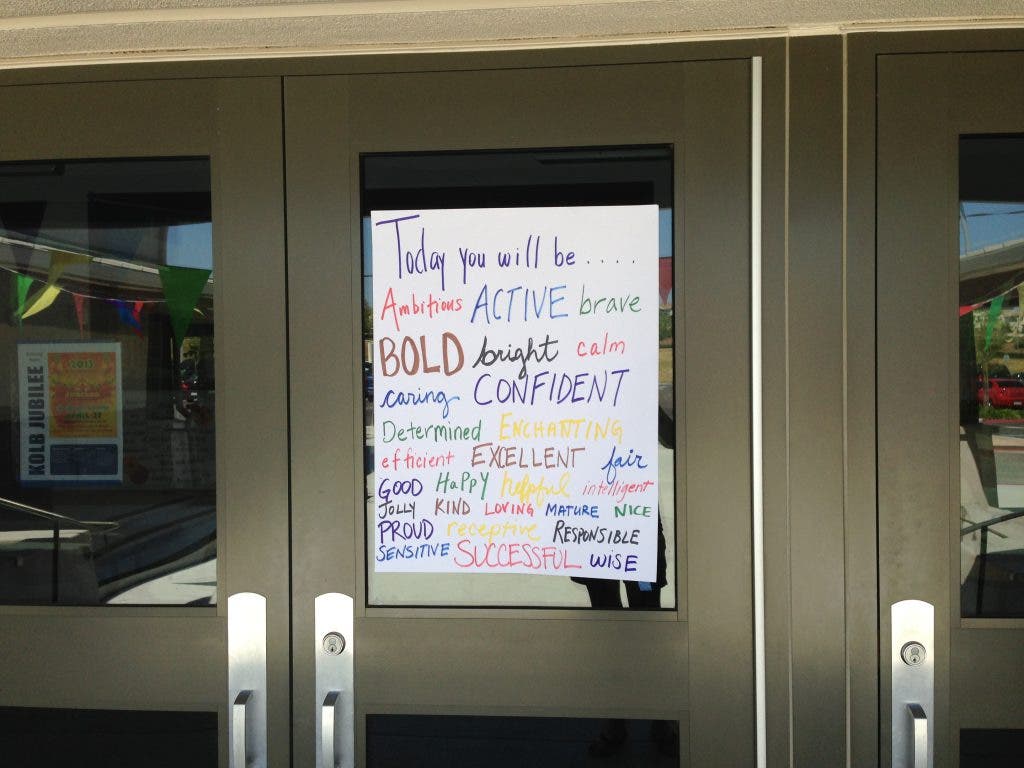 Today you will be ....
Ambitious ACTIVE brave
BOLD bright calm
caring CONFIDENT
Determined ENCHANTING
efficient EXCELLENT fair
GOOD HaPPY helpful intelligent
JOLLY KIND LOVING MATURE NICE
PROUD receptive RESPONSIBLE
SENSITIVE SUCCESSFUL WISE
KOLB JUBILEE
2013
APRIL 27